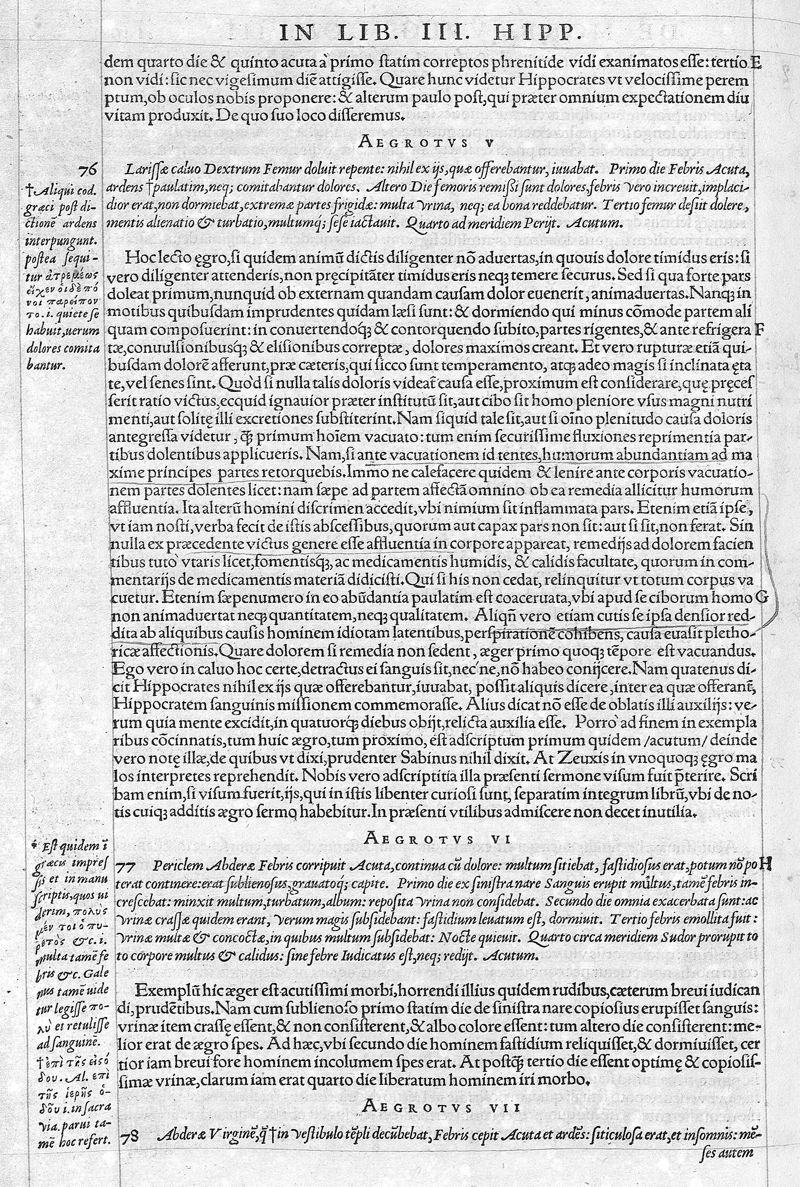 IN LIB. III. HIPP.
dem quarto die & quinto acuta à primo statim correptos phrenitide vidi exanimatos esse: tertio E
non vidi: sic nec vigesimum diē attigisse. Quare hunc videtur Hippocrates vt velocissime perem
ptum, ob oculos nobis proponere: & alterum paulo post, qui præter omnium expectationem diu
vitam produxit. De quo suo loco disseremus.
AEGROTVS V
76
Larissæ caluo Dextrum Femur doluit repente: nihil ex ijs, quæ offerebantur, iuuabat. Primo die Febris Acuta,
ardens †paulatim, neq; comitabantur dolores. Altero Die femoris remissi sunt dolores, febris vero increuit, implaci-
dior erat, non dormiebat, extremæ partes frigidæ: multa vrina, neq; ea bona reddebatur. Tertio femur desijt dolere,
mentis alienatio & turbatio, multumq; sese iactauit. Quarto ad meridiem Perijt. Acutum.
†Aliqui cod.
græci post di-
ctionē ardens
interpungunt.
postea sequi-
tur ἀτρεμέως
εἶχεν οἱ δὲ πό
νοι παρείπον
το .i. quiete se
habuit, uerum
dolores comita
bantur.
Hoc lecto ęgro, si quidem animū dictis diligenter nō aduertas, in quouis dolore timidus eris: si
vero diligenter attenderis, non pręcipitāter timidus eris neq; temere securus. Sed si qua forte pars
doleat primum, nunquid ob externam quandam causam dolor euenerit, animaduertas. Nanq; in
motibus quibusdam imprudentes quidam læsi sunt: & dormiendo qui minus cōmode partem ali
quam composuerint: in conuertendoq; & contorquendo subito, partes rigentes, & ante refrigera F
tæ, conuulsionibusq; & elisionibus correptæ, dolores maximos creant. Et vero rupturæ etiā qui-
busdam dolorē afferunt, præ cæteris, qui sicco sunt temperamento, atq; adeo magis si inclinata ęta
te, vel senes sint. Quòd si nulla talis doloris videat causa esse, proximum est considerare, quę pręces
serit ratio victus, ecquid ignauior præter institutū sit, aut cibo sit homo pleniore vsus magni nutri
menti, aut solitę illi excretiones substiterint. Nam siquid tale sit, aut si oīno plenitudo causa doloris
antegressa videtur, q̄ primum hoīem vacuato: tum enim securissime fluxiones reprimentia par-
tibus dolentibus applicueris. Nam, si ante vacuationem id tentes, humorum abundantiam ad ma
xime principes partes retorquebis. Immo ne calefacere quidem & lenire ante corporis vacuatio-
nem partes dolentes licet: nam sæpe ad partem affectā omnino ob ea remedia allicitur humorum
affluentia. Ita alterū homini discrimen accedit, vbi nimium sit inflammata pars. Etenim etiā ipse,
vt iam nosti, verba fecit de istis abscessibus, quorum aut capax pars non sit: aut si sit, non ferat. Sin
nulla ex præcedente victus genere esse affluentia in corpore appareat, remedijs ad dolorem facien
tibus tuto vtaris licet, fomentisq;, ac medicamentis humidis, & calidis facultate, quorum in com-
mentarijs de medicamentis materiā didicisti. Qui si his non cedat, relinquitur vt totum corpus va
cuetur. Etenim sæpenumero in eo abūdantia paulatim est coaceruata, vbi apud se ciborum homo G
non animaduertat neq; quantitatem, neq; qualitatem. Aliqn̄ vero etiam cutis se ipsa densior red-
dita ab aliquibus causis hominem idiotam latentibus, perspirationē cohibens, causa euasit pletho-
ricæ affectionis. Quare dolorem si remedia non sedent, æger primo quoq; tēpore est vacuandus.
Ego vero in caluo hoc certe, detractus ei sanguis sit, nec'ne, nō habeo conijcere. Nam quatenus di-
cit Hippocrates nihil ex ijs quæ offerebantur, iuuabat, possit aliquis dicere, inter ea quæ offerant,
Hippocratem sanguinis missionem commemorasse. Alius dicat nō esse de oblatis illi auxilijs: ve-
rum quia mente excidit, in quatuorq; diebus obijt, relicta auxilia esse. Porro ad finem in exempla
ribus cōcinnatis, tum huic ægro, tum proximo, est adscriptum primum quidem /acutum/ deinde
vero notę illæ, de quibus vt dixi, prudenter Sabinus nihil dixit. At Zeuxis in vnoquoq; ęgro ma
los interpretes reprehendit. Nobis vero adscriptitia illa præsenti sermone visum fuit p̄terire. Scri
bam enim, si visum fuerit, ijs, qui in istis libenter curiosi sunt, separatim integrum librū, vbi de no-
tis cuiq; additis ægro sermo habebitur. In præsenti vtilibus admiscere non decet inutilia.
AEGROTVS VI
77 Periclem Abderæ Febris corripuit Acuta, continua cū dolore: multum sitiebat, fastidiosus erat, potum nō po H
terat continere: erat sublienosus, grauatoq; capite. Primo die ex sinistra nare Sanguis erupit multus, tamē febris in-
crescebat: minxit multum, turbatum, album: reposita vrina non considebat. Secundo die omnia exacerbata sunt: ac
vrinæ crassæ quidem erant, verum magis subsidebant: fastidium leuatum est, dormiuit. Tertio febris emollita fuit:
vrinæ multæ & concoctæ, in quibus multum subsidebat: Nocte quieuit. Quarto circa meridiem Sudor prorupit to
to corpore multus & calidus: sine febre Iudicatus est, neq; redijt. Acutum.
* Est quidem ī
græcis impres
sis et in manu
scriptis, quos ui
derim, πολὺς
μέν τοι ὁ πυ-
ρετὸς &c. i.
multa tamē fe
bris &c. Gale
nus tamē uide
tur legisse πο-
λὺ et retulisse
ad sanguinē.
Exemplū hic æger est acutissimi morbi, horrendi illius quidem rudibus, cæterum breui iudican
di, prudētibus. Nam cum sublienoso primo statim die de sinistra nare copiosius erupisset sanguis:
vrinæ item crassę essent, & non consisterent, & albo colore essent: tum altero die consisterent: me-
lior erat de ægro spes. Ad hæc, vbi secundo die hominem fastidium reliquisset, & dormiuisset, cer
tior iam breui fore hominem incolumem spes erat. At postq; tertio die essent optimę & copiosis-
simæ vrinæ, clarum iam erat quarto die liberatum hominem iri morbo.
†ἐπὶ τῆς εἰσό
δου. Al. ἐπὶ
τῆς ἱερῆς ὁ-
δοῦ i. in sacra
via. parui ta-
mē hoc refert.
AEGROTVS VII
78 Abderæ Virginē, q̄ †in vestibulo tēpli decūbebat, Febris cepit Acuta et ardēs: siticulosa erat, et insomnis: mē-
ses autem